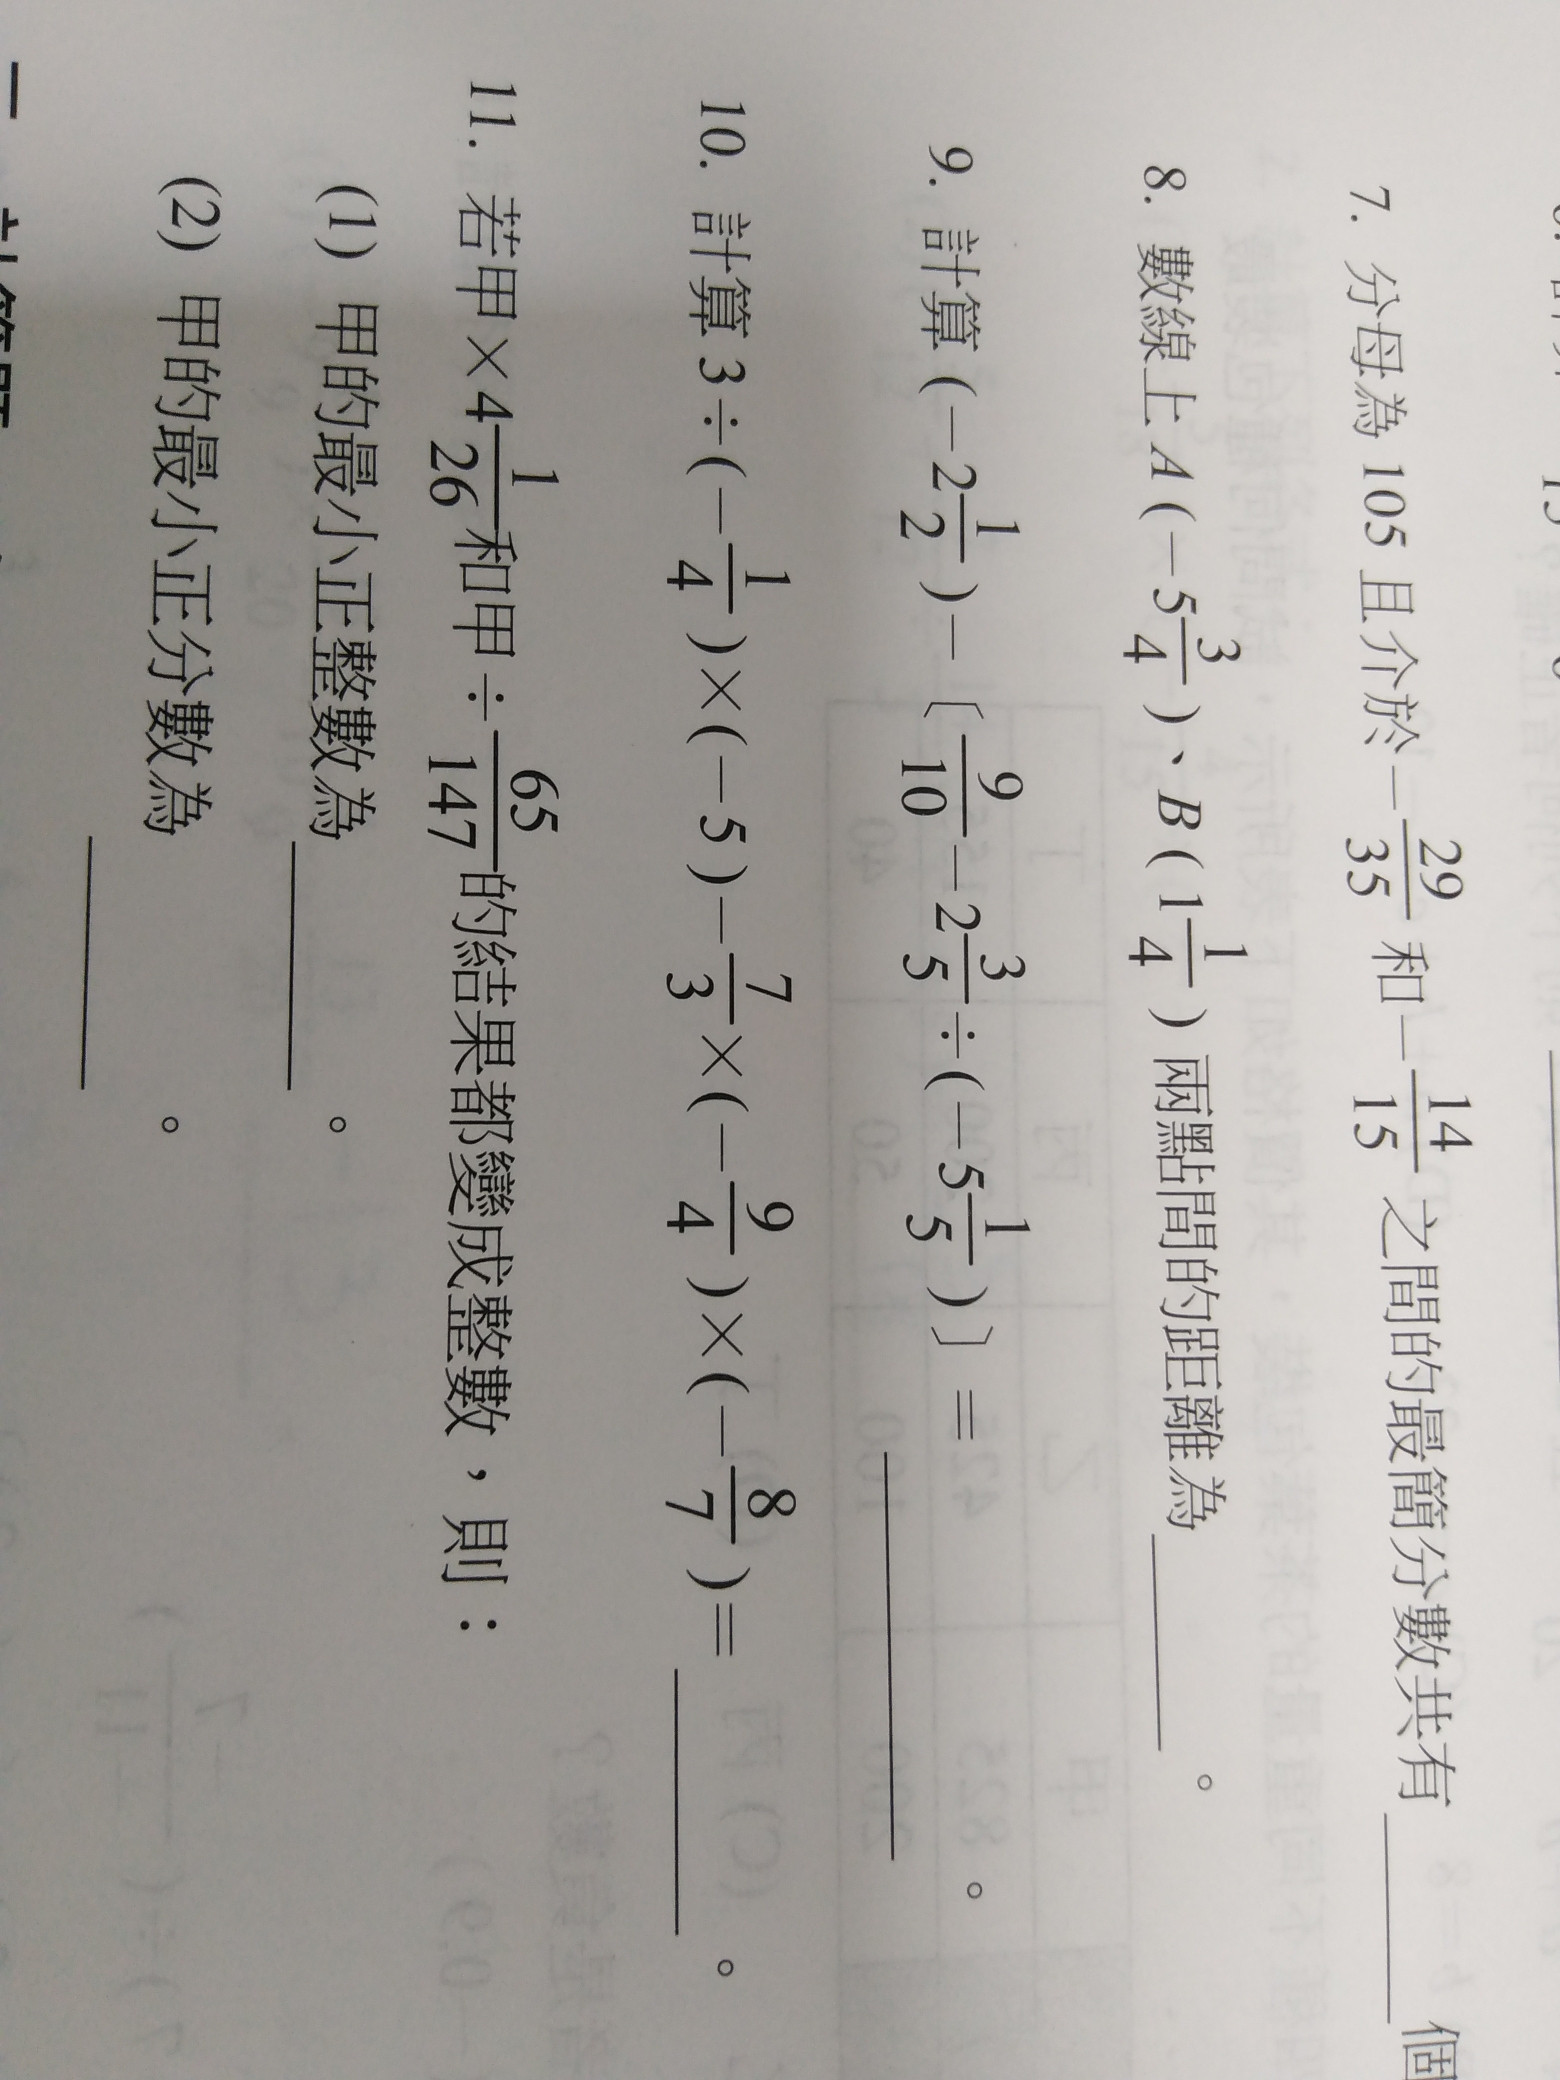 7. 分母為 105 且介於 -29/35 和 -14/15 之間的最簡分數共有______個
8. 數線上 A(-5 3/4)、B(1 1/4) 兩點間的距離為______。
9. 計算 (-2 1/2)-〔9/10-2 3/5÷(-5 1/5)〕=______。
10. 計算 3÷(-1/4)×(-5)-7/3×(-9/4)×(-8/7)=______。
11. 若甲×4 1/26 和甲÷65/147 的結果都變成整數，則：
(1) 甲的最小正整數為______。
(2) 甲的最小正分數為______。